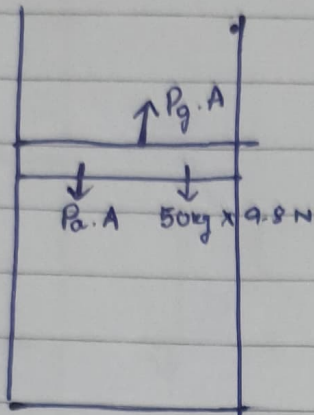 Pg.A
Pa.A 50kg x 9.8 N